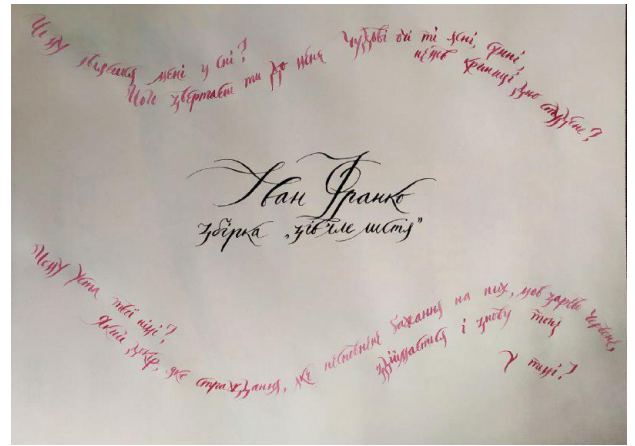 Чому являєшся мені у сні?
Чого звертаєш ти до мене
Чудові очі ті ясні, сумні,
немов криниці дно студене?
Іван Франко
збірка „зів'яле листя"
Чому уста твої німі?
Який докір, яке страждання,
яке несповнене бажання на них, мов зарево червоне,
займається і знову тоне
у тьмі?